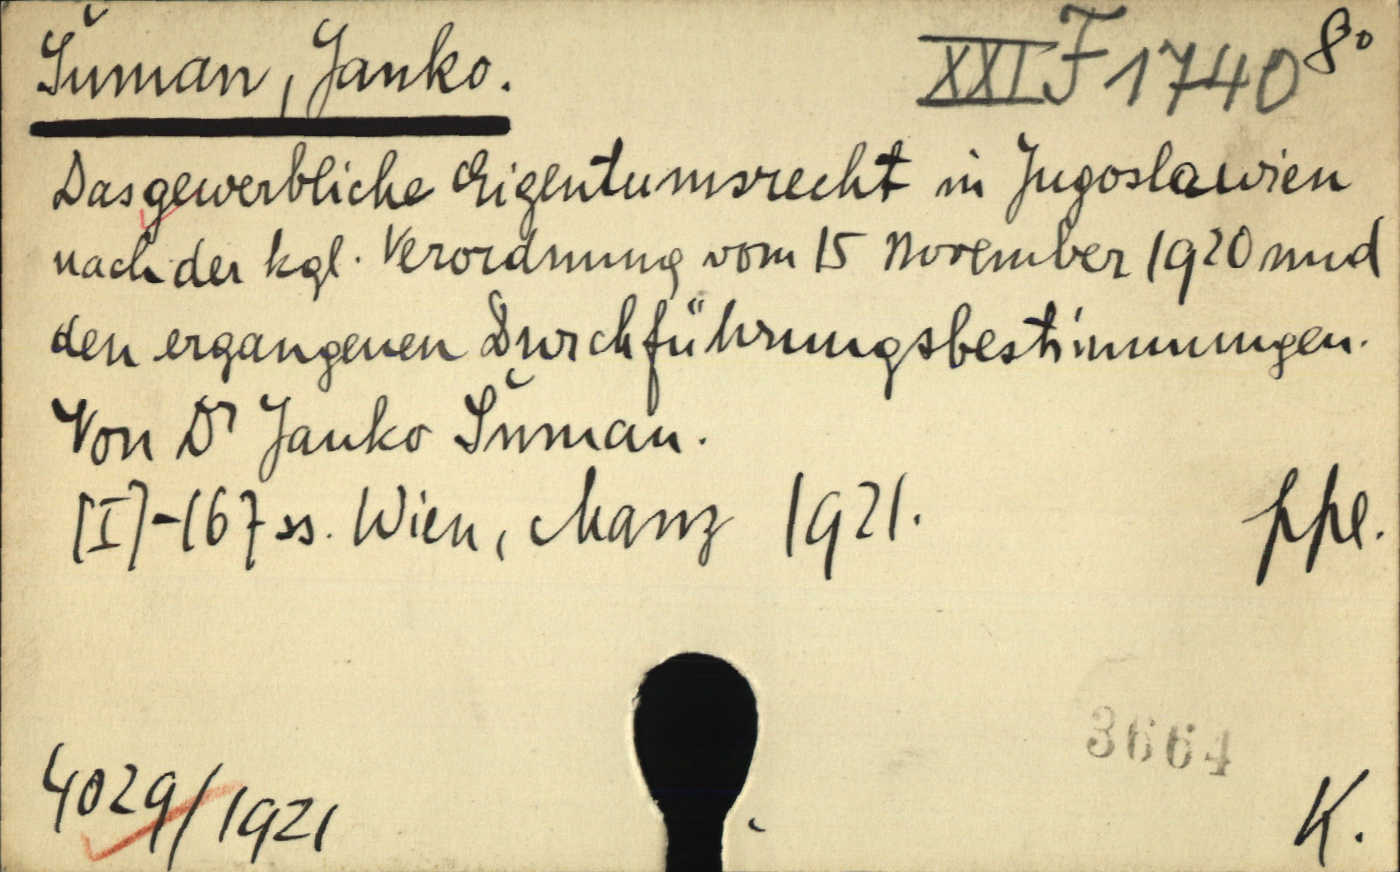 Šuman, Janko.
XXI F 1740 8°
Das gewerbliche Eigentumsrecht in Jugoslawien
nach der kgl. Verordnung vom 15 November 1920 und
den ergangenen Durchführungsbestimmungen.
Von Dr Janko Šuman.
[I]-167 ss. Wien, Manz 1921. ppl.
3664
4029/1921
K.